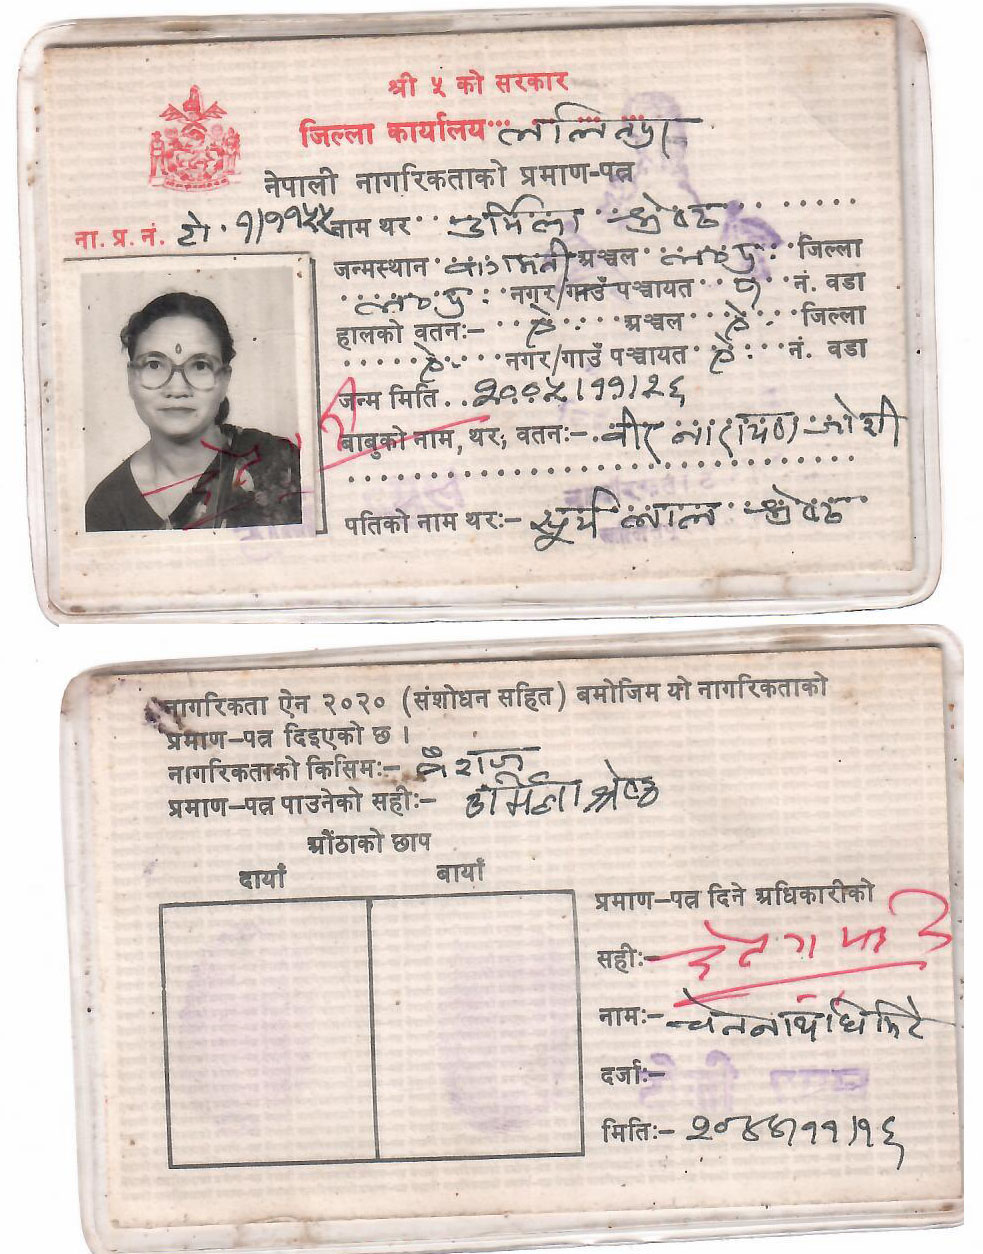 श्री ५ को सरकार
जिल्ला कार्यालय ललितपुर
नेपाली नागरिकताको प्रमाण-पत्र
ना. प्र. नं. टो. १/११५५ नाम थर उर्मिला श्रेष्ठ
जन्मस्थान वागमती अञ्चल ल.पु. जिल्ला
ल.पु. नगर/गाउँ पञ्चायत नं. वडा
हालको वतनः- ऐ. अञ्चल ऐ. जिल्ला
ऐ. नगर/गाउँ पञ्चायत ऐ. नं. वडा
जन्म मिति २००५।११।२६
बाबुको नाम, थर, वतनः- वीर नारायण जोशी
पतिको नाम थरः- सूर्य लाल श्रेष्ठ
नागरिकता ऐन २०२० (संशोधन सहित) बमोजिम यो नागरिकताको
प्रमाण-पत्र दिइएको छ ।
नागरिकताको किसिमः- वंशज
प्रमाण-पत्र पाउनेको सहीः- उर्मिला श्रेष्ठ
औंठाको छाप
दायाँ बायाँ
प्रमाण-पत्र दिने अधिकारीको
सहीः-
नामः-
दर्जाः-
मितिः- २०४४।११।१६